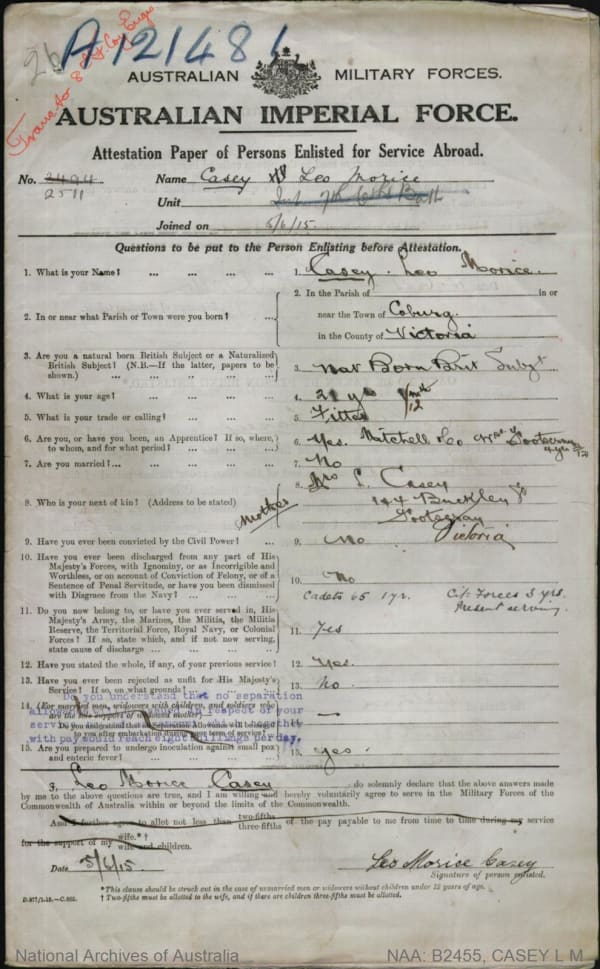 A121486
Trans to 8
AUSTRALIAN MILITARY FORCES.
AUSTRALIAN IMPERIAL FORCE.
Attestation Paper of Persons Enlisted for Service Abroad.
No. 2494 Name Casey Leo Morice
2511 Unit
Joined on 5/6/15.
Questions to be put to the Person Enlisting before Attestation.
1. What is your Name? ... ... ... ... 1. Casey. Leo Morice.
2. In or near what Parish or Town were you born? ... 2. In the Parish of in or
near the Town of Coburg.
in the County of Victoria
3. Are you a natural born British Subject or a Naturalized
British Subject? (N.B.—If the latter, papers to be
shown.) ... ... ... ... 3. Nat Born Brit Subjt
4. What is your age? ... ... ... ... 4. 21 yrs
5. What is your trade or calling? ... ... ... 5. Fitter
6. Are you, or have you been, an Apprentice? If so, where,
to whom, and for what period? ... ... ... 6. Yes. Mitchell & Co
7. Are you married?... ... ... ... ... 7. No
8. Who is your next of kin? (Address to be stated) mother 8. Mrs L. Casey
144 Buckley St
Footscray
Victoria
9. Have you ever been convicted by the Civil Power? ... 9. No
10. Have you ever been discharged from any part of His
Majesty's Forces, with Ignominy, or as Incorrigible and
Worthless, or on account of Conviction of Felony, or of a
Sentence of Penal Servitude, or have you been dismissed
with Disgrace from the Navy? ... ... ... 10. No
Cadets 65 1 yr. Cit. Forces 3 yrs.
Present serving.
11. Do you now belong to, or have you ever served in, His
Majesty's Army, the Marines, the Militia, the Militia
Reserve, the Territorial Force, Royal Navy, or Colonial
Forces? If so, state which, and if not now serving,
state cause of discharge ... ... ... ... 11. Yes
12. Have you stated the whole, if any, of your previous service? 12. Yes.
13. Have you ever been rejected as unfit for His Majesty's
Service? If so, on what grounds? ... ... 13. No
Do you understand that no separation
14. (For married men, widowers with children, and soldiers who
are the sole support of widowed mother)—
Do you understand that no Separation Allowance will be
to you after embarkation during your term of service? 14. —
with pay would reach eight shillings per day.
15. Are you prepared to undergo inoculation against small pox
and enteric fever? ... ... ... ... 15. Yes.
I, Leo Morice Casey do solemnly declare that the above answers made
by me to the above questions are true, and I am willing and hereby voluntarily agree to serve in the Military Forces of the
Commonwealth of Australia within or beyond the limits of the Commonwealth.
And I further agree to allot not less than two-fifths three-fifths of the pay payable to me from time to time during my service
for the support of my wife.*† wife and children.
Date 5/6/15. Leo Morice Casey
Signature of person enlisted.
*This clause should be struck out in the case of unmarried men or widowers without children under 18 years of age.
† Two-fifths must be allotted to the wife, and if there are children three-fifths must be allotted.
National Archives of Australia NAA: B2455, CASEY L M